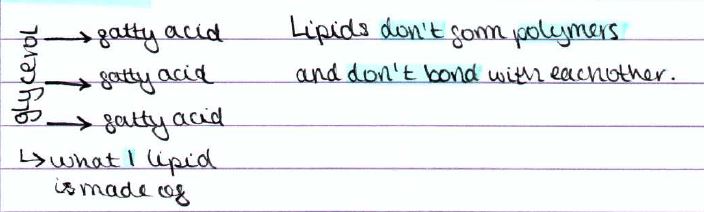 glycerol
→ fatty acid
→ fatty acid
→ fatty acid
↳ what 1 lipid
is made of
Lipids don't form polymers
and don't bond with eachother.